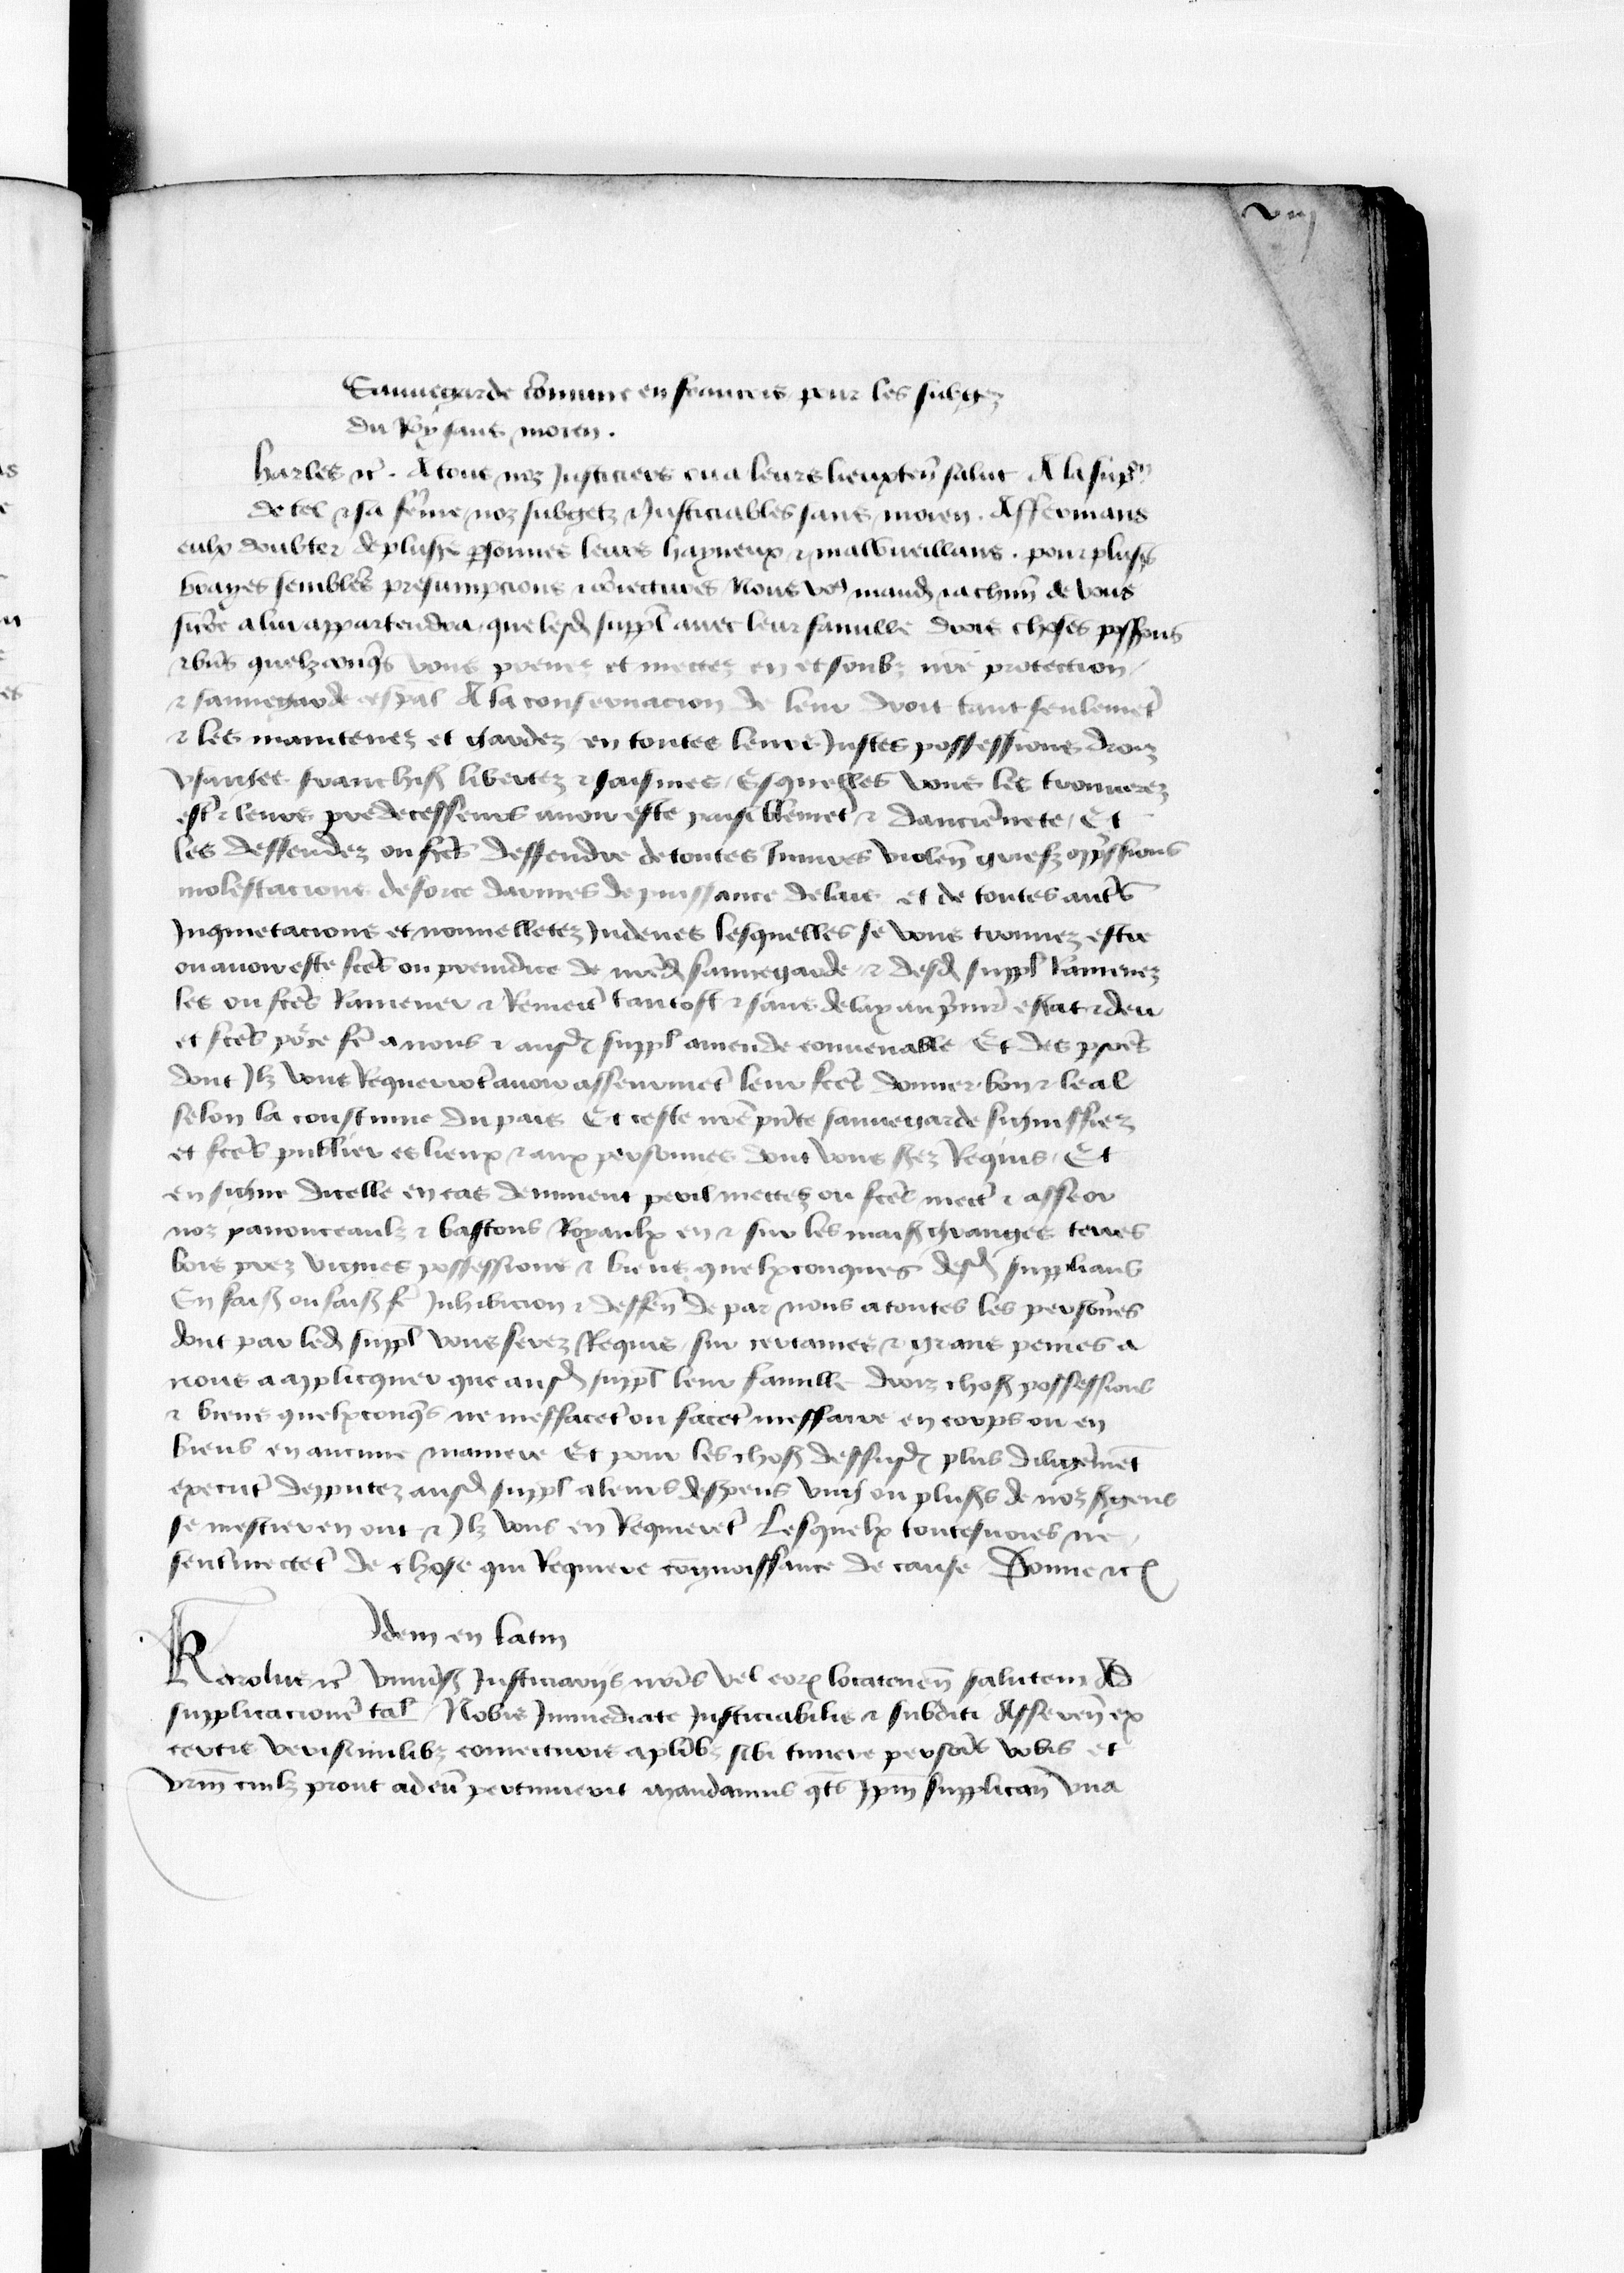 viij
Sauuegarde cõmune en francois pour les subgez
du Roy sans moien .
harles etc̃ . A tous noz Justiciers ou a leurs lieuxteñ salut A la supp̃on
de tel & sa fẽme noz subgetz & Justiciables sans moien . Affermans
eulx doubter de plusrs̃ p̃sonnes leurs hayneux & malvueillans . pour plusrs̃
vrayes sembleb̃ presumpcions & cõiectures Nous vo9 mand̃ & a chũn de vous
si cõe a lui appartendra que lesd̃ suppl̃ auec leur famille drois choses possess̃ons
& biẽs quelzconqs̃ vous prenez et mectez en et soubz nr̃e protection
& sauuegarde especial A la conseruacion de leur droit tant seulemet̃
& les maintenez et gardez en toutes leurs Justes possessions droiz
vsaiges franchis̃ libertez & saisines Esquelles vous les trouuerez
estr̃ & leurs predecesseurs auoir este paisiblemet̃ & danciẽnete / Et
les deffendez ou fc̃es deffendre de toutes Iniures violeñ griefz opp̃ssions
molestacions de force darmes de puissance de lais et de toutes autr̃s
Inquietacions et nouuelletez Indeues lesquelles se vous trouuez estre
ou auoir este fc̃es ou preiudice de nr̃ed̃ sauuegarde & desd̃ suppl̃ Ramenez
les ou fc̃es Ramener & Remectr̃ tantost & sans delay au p̃mier estat & deu
et fc̃es põr ce fẽ a nous & ausd̃ suppl̃ amende conuenable Et des pties̃
dont Ilz vous Requerrot̃ auoir asseuremet̃ leur fc̃es donner bon & leal
selon la coustume du pais Et ceste nr̃e pñte sauuegarde signiffiez
et fc̃es publier es lieux & aux personnes dont vous s̃ez Requis / Et
en signe dicelle en cas deminent peril mectez ou fc̃es mectr̃ & asseoir
noz panonceaulx & bastons Royaulx en & sur les mais̃ granges terres
bois prez vignes possessions & biens quelxconques desd̃ supplians
En fais̃ ou fais̃ fẽ Inhibicion & deffeñ de par nous a toutes les persones̃
dont par led̃ suppl̃ vous serez Requis sur certaines & grans peines a
nous a applicquer que ausd̃ suppl̃ leur famille droiz chos̃ possessions
& biens quelxconqs̃ ne meffacet̃ ou facet̃ meffaire en corps ou en
biens en aucune maniere Et pour les chos̃ dessusd̃ plus diligẽment
executr̃ depputez ausd̃ suppl̃ a leurs despens vng ou plusrs̃ de noz s̃gens
se mestier en ont & Ilz vous en Requieret̃ Lesquelx toutesuoies ne
sentrmectet̃ de chose qui Requiere cõgnoissance de cause Donne etc̃
Idem en latin
Karolus etc̃ vniuẽrs̃ Justiciarijs nr̃is vel eor̃ locateneñ salutem AD
supplicacionẽ tal̃ / Nobis Immediate Justiciabilis & subditi Assereñ ex
certis verisimilibz coniecturis a plibz̃ sibi timere persoñis vobis et
vr̃m cuilz prout ad eũ pertinuerit mandamus qts̃ Ipm̃ supplicañ vna